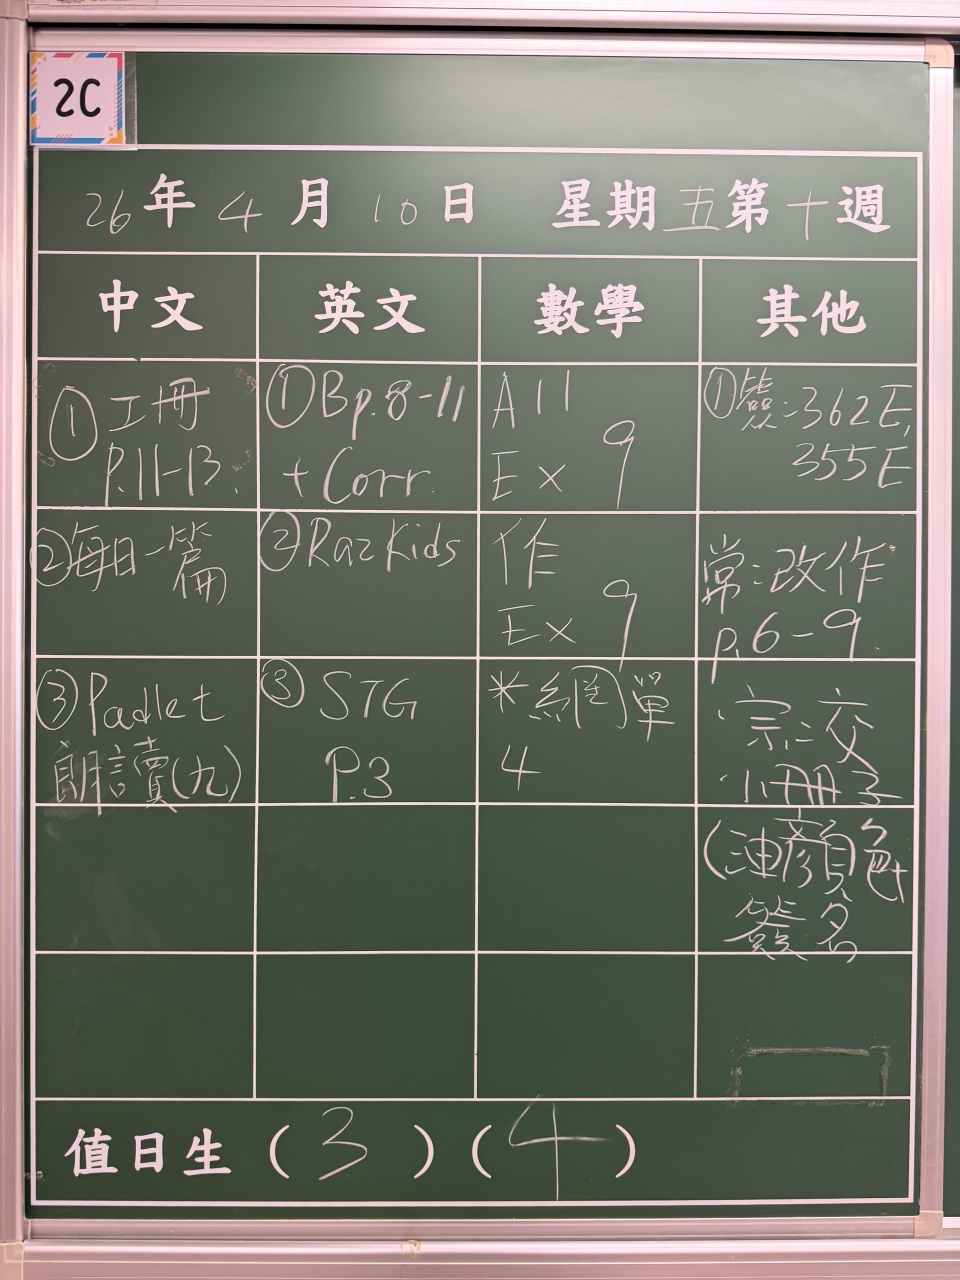 2C
26年4月10日 星期五第十週
中文 英文 數學 其他
①工冊
P.11-13.
②每日一篇
③Padlet
朗讀(九)
①Bp.8-11
+Corr.
②RazKids
③STG
P.3
A11
Ex 9
作
Ex 9
*網單
4
①簽:362E,
355E
常:改作
p.6-9.
宗:交
小冊子
(油顏色+
簽名
值日生(3)(4)